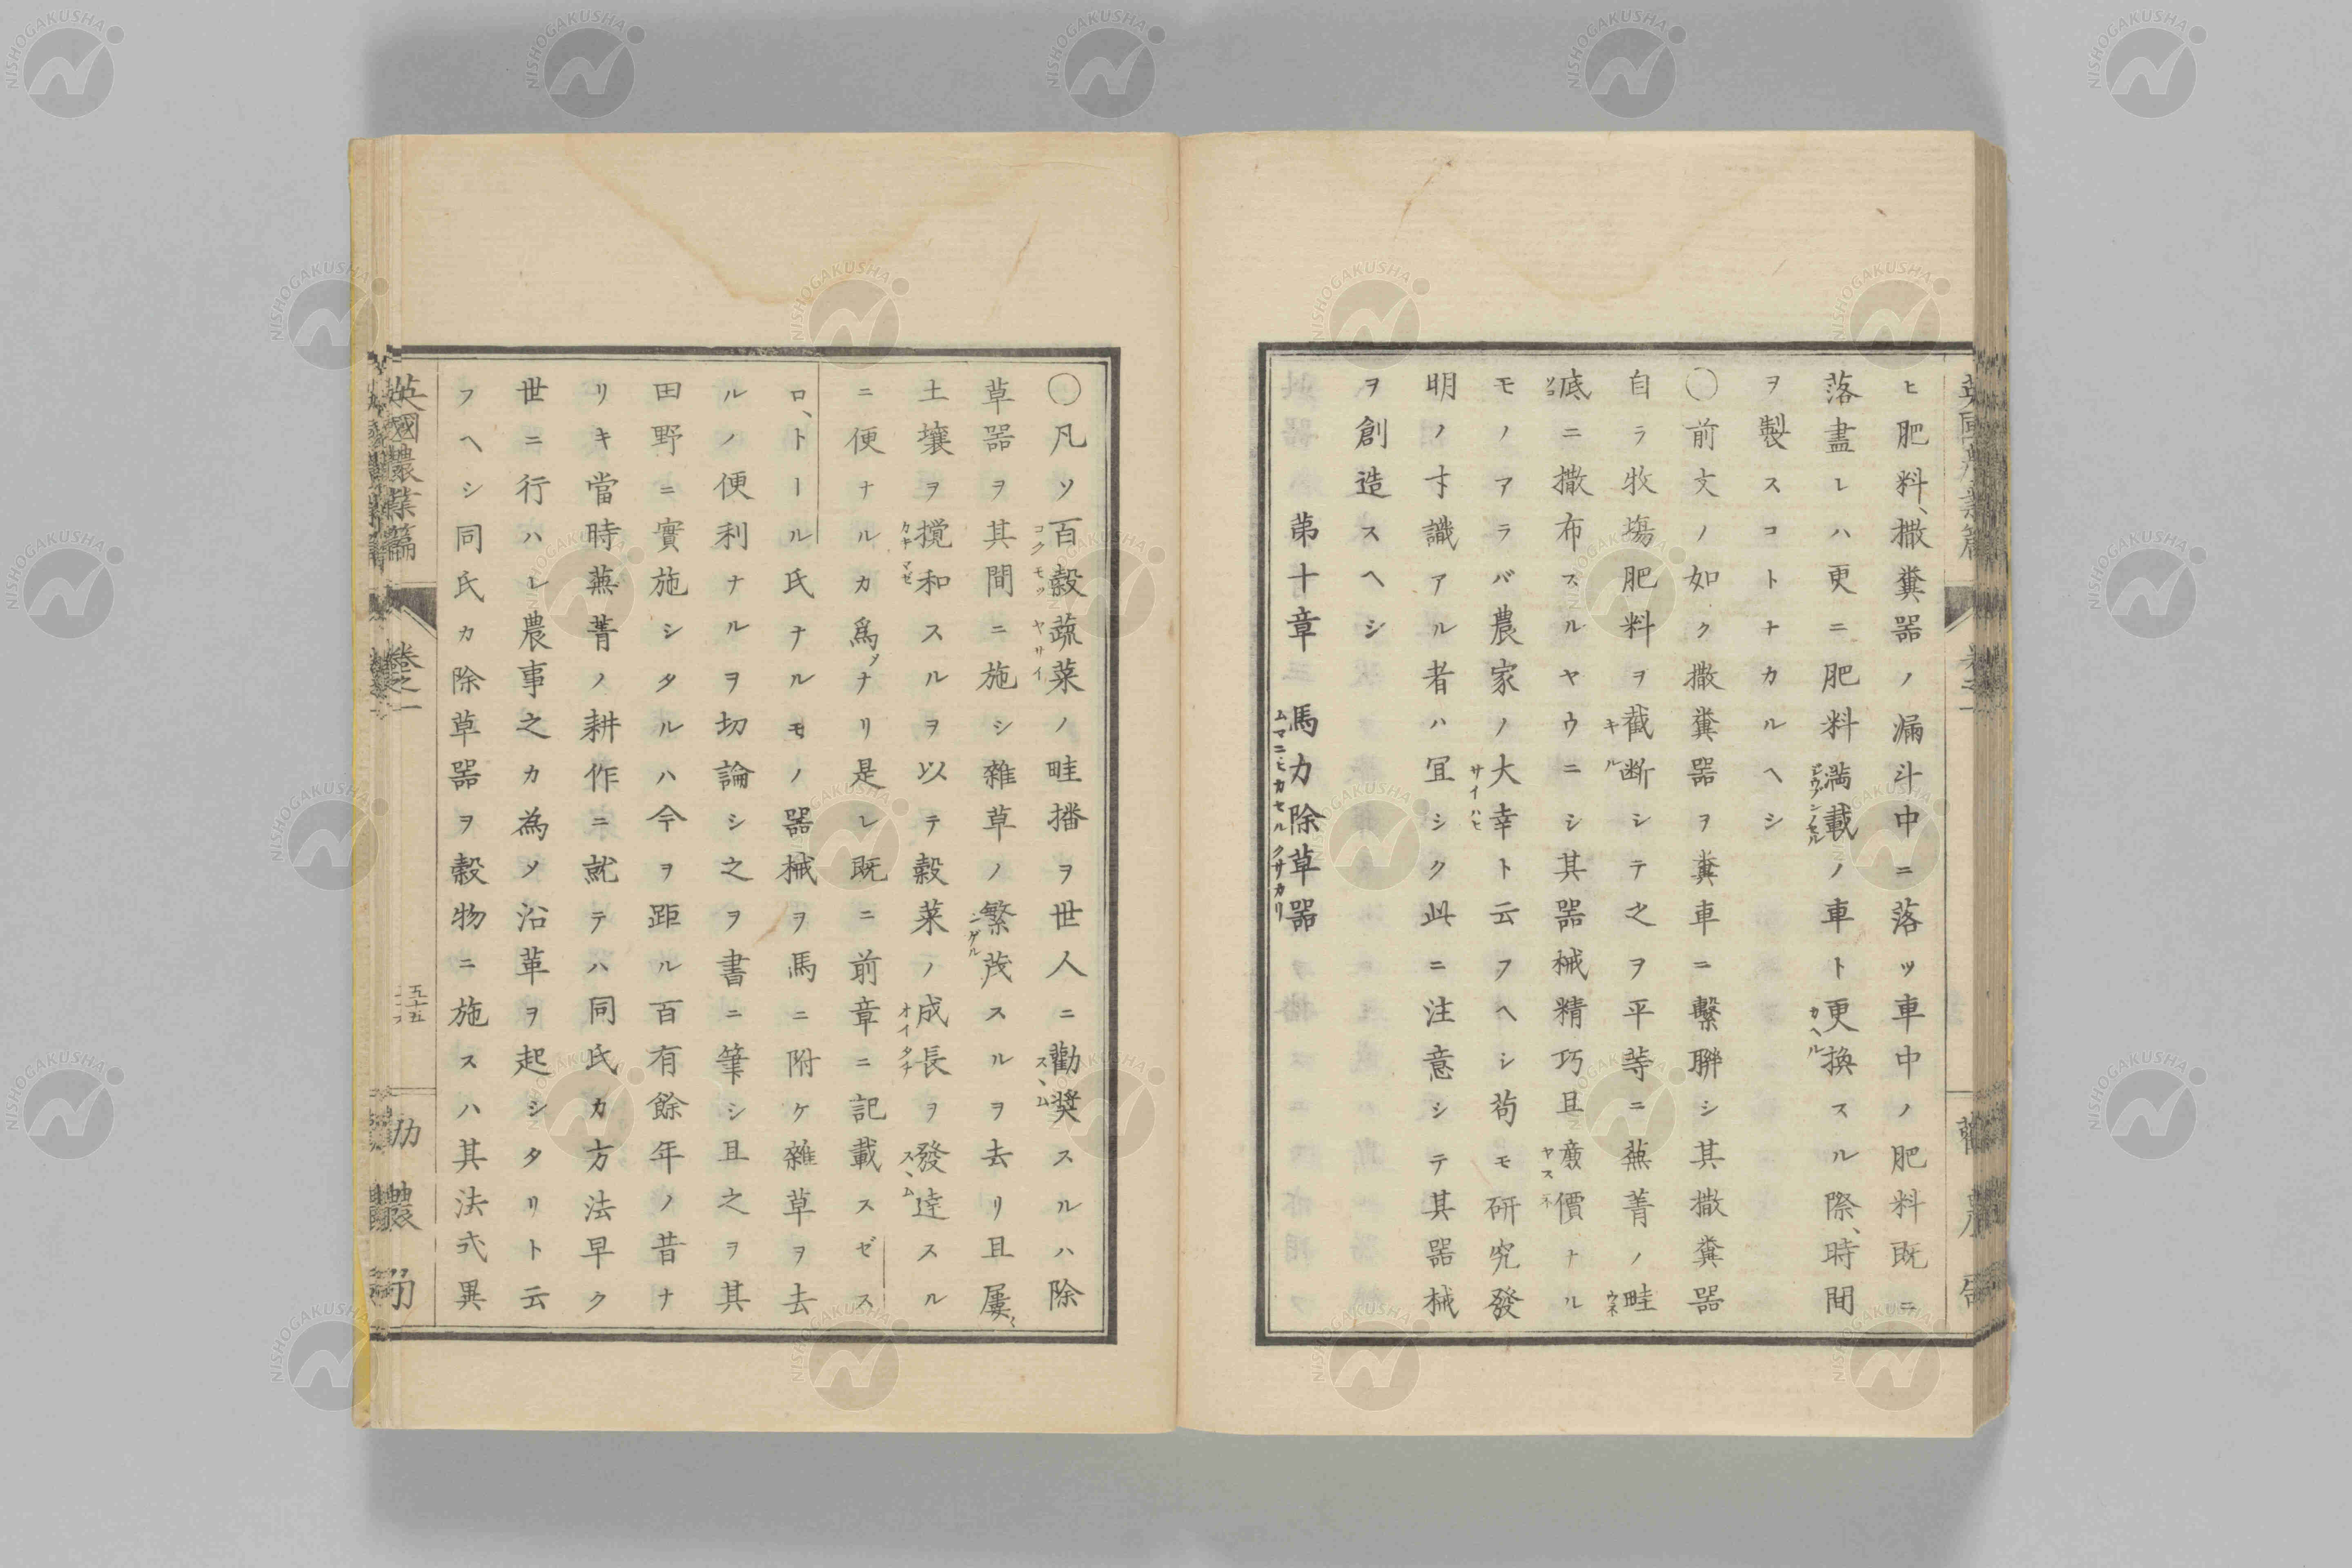 ヒ肥料、撒糞器ノ漏斗中ニ落ツ車中ノ肥料既ニ
落盡レハ更ニ肥料満載ノ車ト更換スル際、時間
ヲ製スコトナカルヘシ
〇前文ノ如ク撒糞器ヲ糞車ニ繫聯シ其撒糞器
自ラ牧塲肥料ヲ截断シテ之ヲ平等ニ蕪菁ノ畦
底ニ撒布スルヤウニシ其器械精巧且廉價ナル
モノアラバ農家ノ大幸ト云フヘシ苟モ研究發
明ノ才識アル者ハ冝シク此ニ注意シテ其器械
ヲ創造スヘシ
第十章 馬力除草器
ムマニヒカセルクサカリ
〇凡ソ百穀蔬菜ノ畦播ヲ世人ニ勸奨スルハ除
草器ヲ其間ニ施シ雜草ノ繁茂スルヲ去リ且屢〻
土壤ヲ攪和スルヲ以テ穀菜ノ成長ヲ發達スル
ニ便ナルカ爲メナリ是レ既ニ前章ニ記載スゼス
ロ、トール氏ナルモノ器械ヲ馬ニ附ケ雜草ヲ去
ルノ便利ナルヲ切論シ之ヲ書ニ筆シ且之ヲ其
田野ニ實施シタルハ今ヲ距ル百有餘年ノ昔ナ
リキ當時蕪菁ノ耕作ニ就テハ同氏カ方法早ク
世ニ行ハレ農事之カ為ソ沿革ヲ起シタリト云
フヘシ同氏カ除草器ヲ穀物ニ施スハ其法式異
英國農業篇 卷之一 五十五